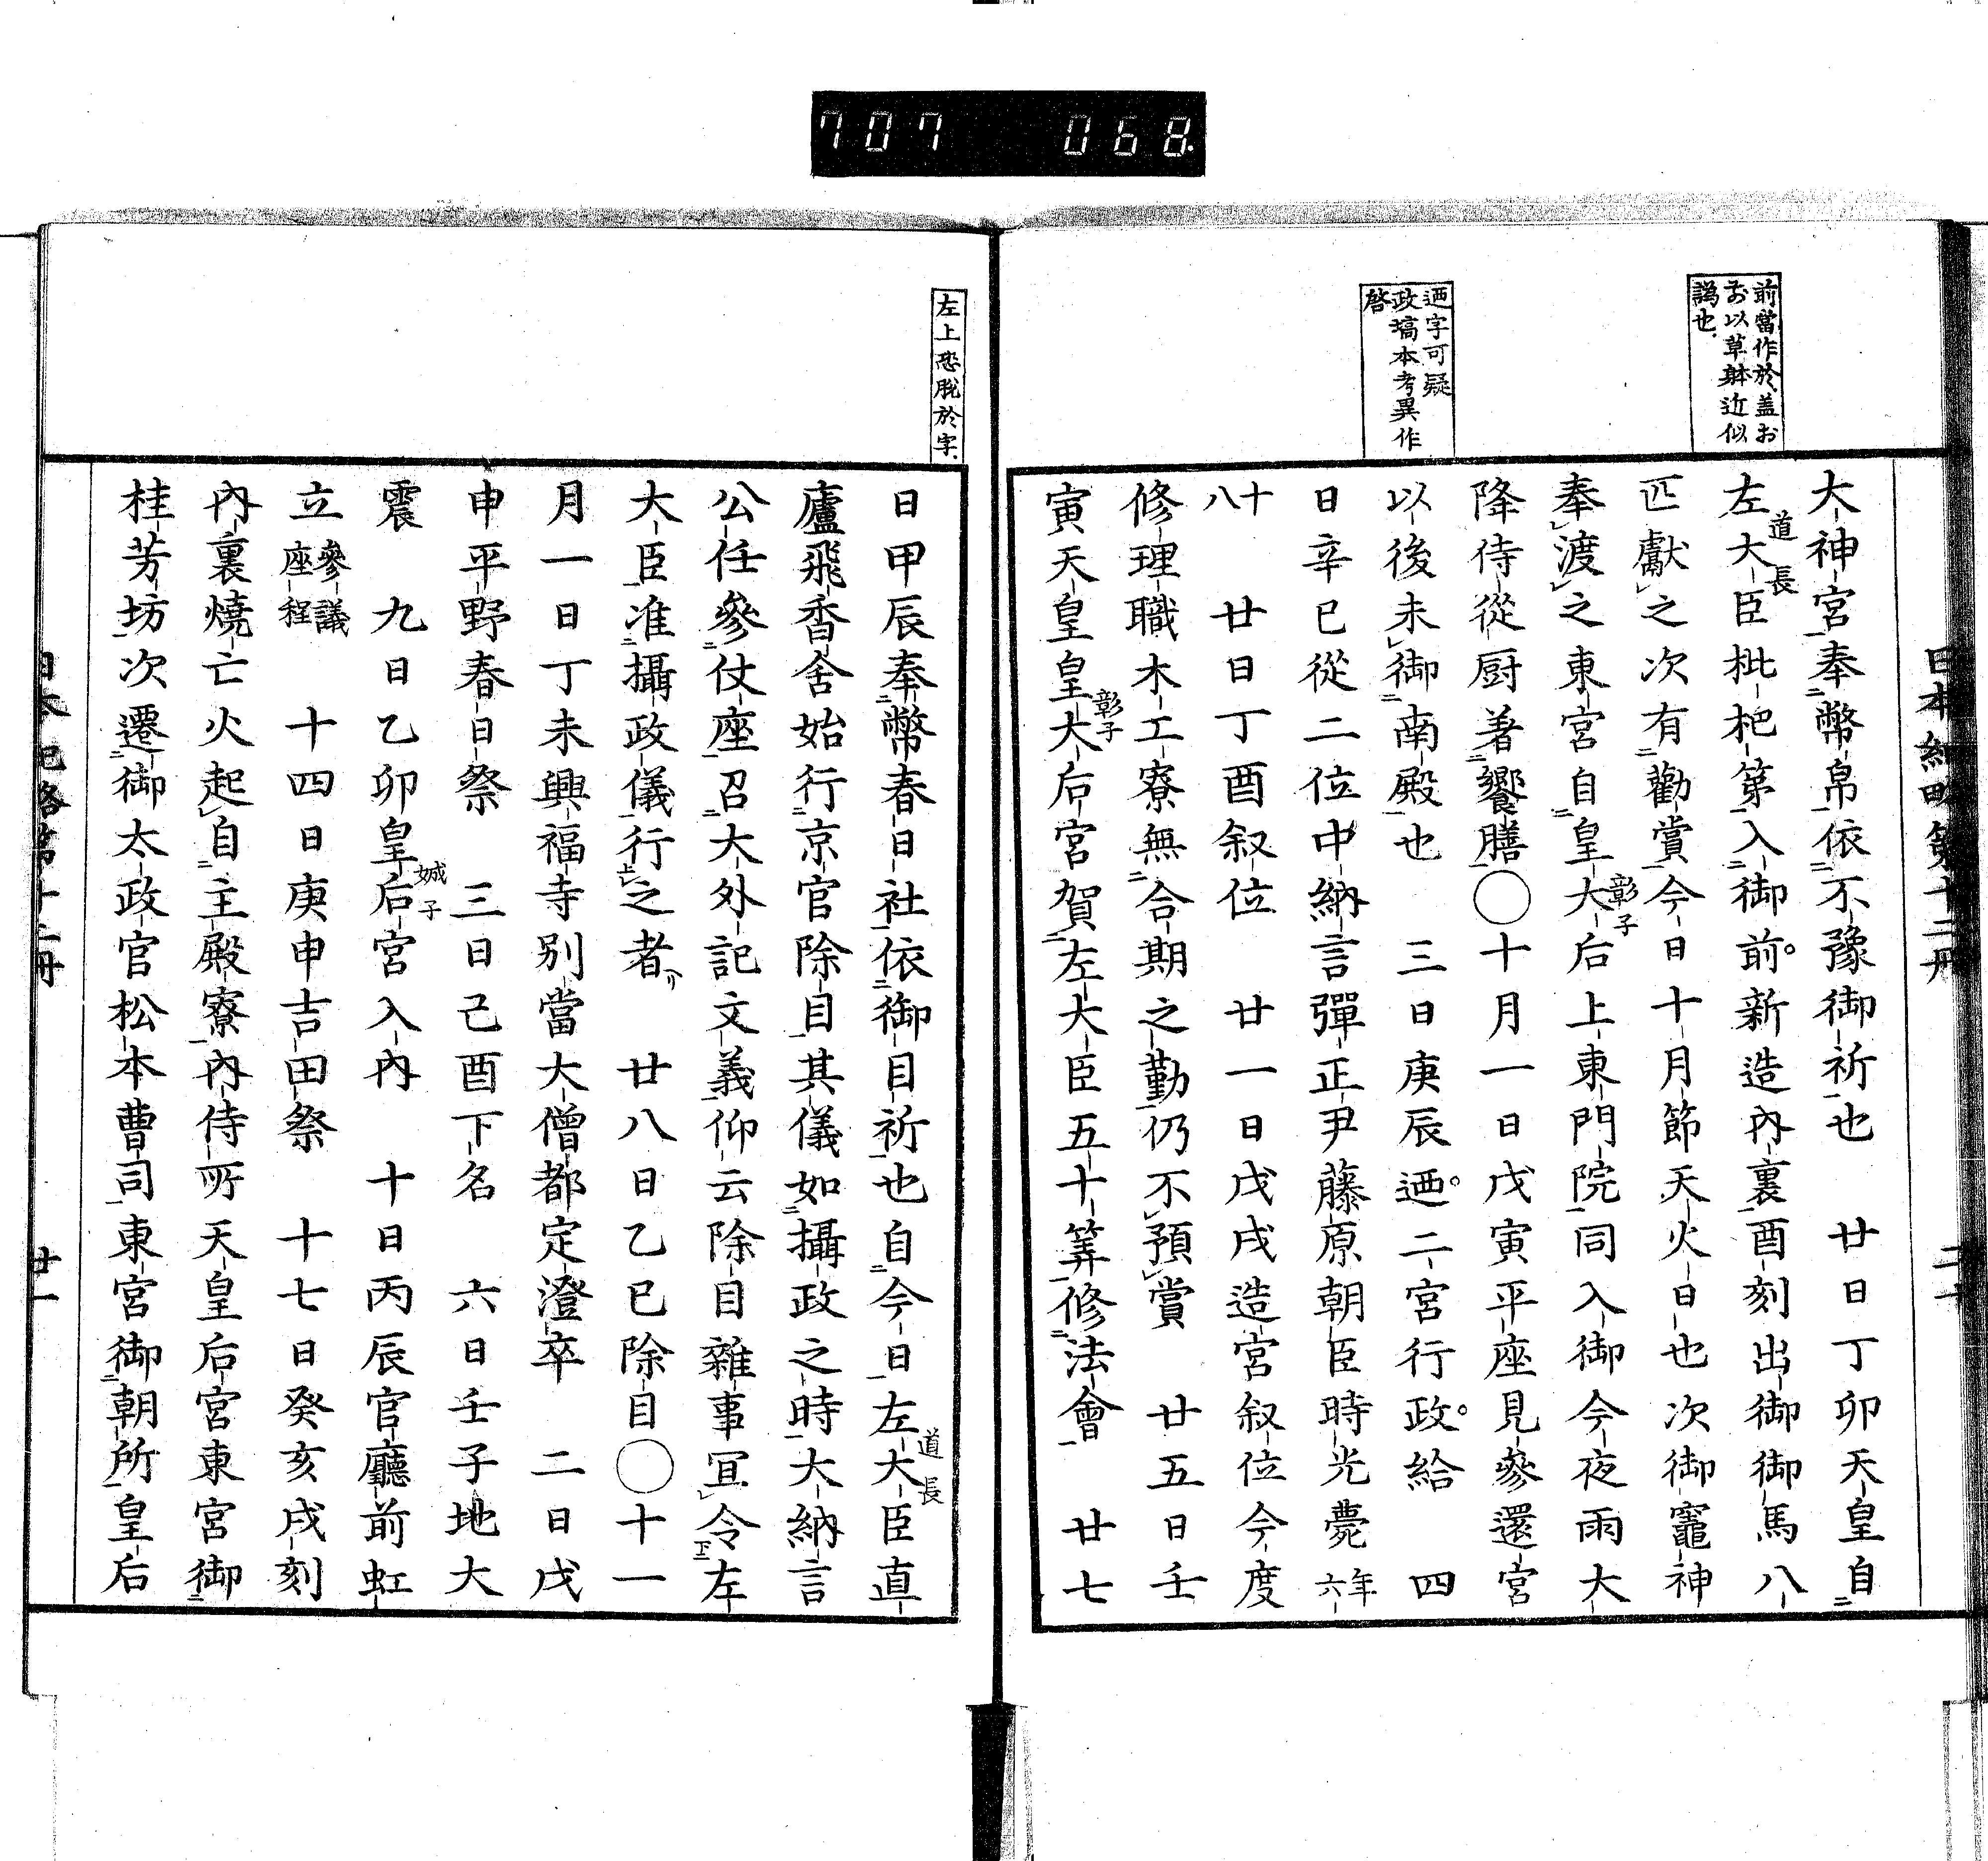 707 068
日本紀略第十二冊
二十
前當作於、蓋お
お以草躰近似
譌也、
迺字可疑
政塙本考異作
啓
大神宮奉幣帛依不豫御祈也　廿日丁卯天皇自
左大臣道長枇杷第入御前新造內裏酉刻出御御馬八
匹獻之次有勸賞今日十月節天火日也次御竈神
奉渡之東宮自皇大后彰子上東門院同入御今夜雨大
降侍從厨著饗膳○十月一日戊寅平座見參還宮
以後未御南殿也　三日庚辰迺二宮行政給　四
日辛巳從二位中納言彈正尹藤原朝臣時光薨年六
十八　廿日丁酉叙位　廿一日戊戌造宮叙位今度
修理職木工寮無合期之勤仍不預賞　廿五日壬
寅天皇皇大后宮彰子賀左大臣五十筭修法會　廿七
左上恐脫於字、
日甲辰奉幣春日社依御目祈也自今日左大臣道長直
廬飛香舍始行京官除目其儀如攝政之時大納言
公任參仗座召大外記文義仰云除目雜事宜令左
大臣准攝政儀行之者　廿八日乙巳除目○十一
月一日丁未興福寺別當大僧都定澄卒　二日戊
申平野春日祭　三日己酉下名　六日壬子地大
震　九日乙卯皇后宮娍子入內　十日丙辰官廳前虹
立參議座程　十四日庚申吉田祭　十七日癸亥戌刻
內裏燒亡火起自主殿寮內侍所天皇后宮東宮御
桂芳坊次遷御太政官松本曹司東宮御朝所皇后
日本紀略第十二冊
廿一